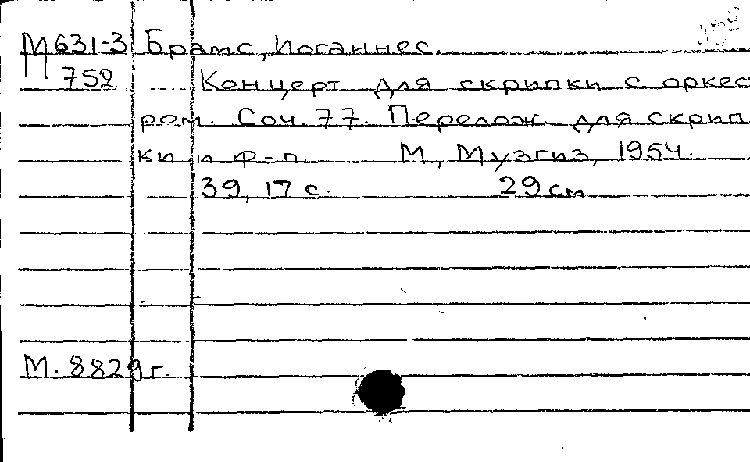 М631-3 Брамс, Иоганнес.
П 752 Концерт для скрипки с оркес
ром. Соч. 77. Перелож. для скрип
ки и ф-п. М., Музгиз, 1954.
39, 17 с. 29 см
М. 8829 г.